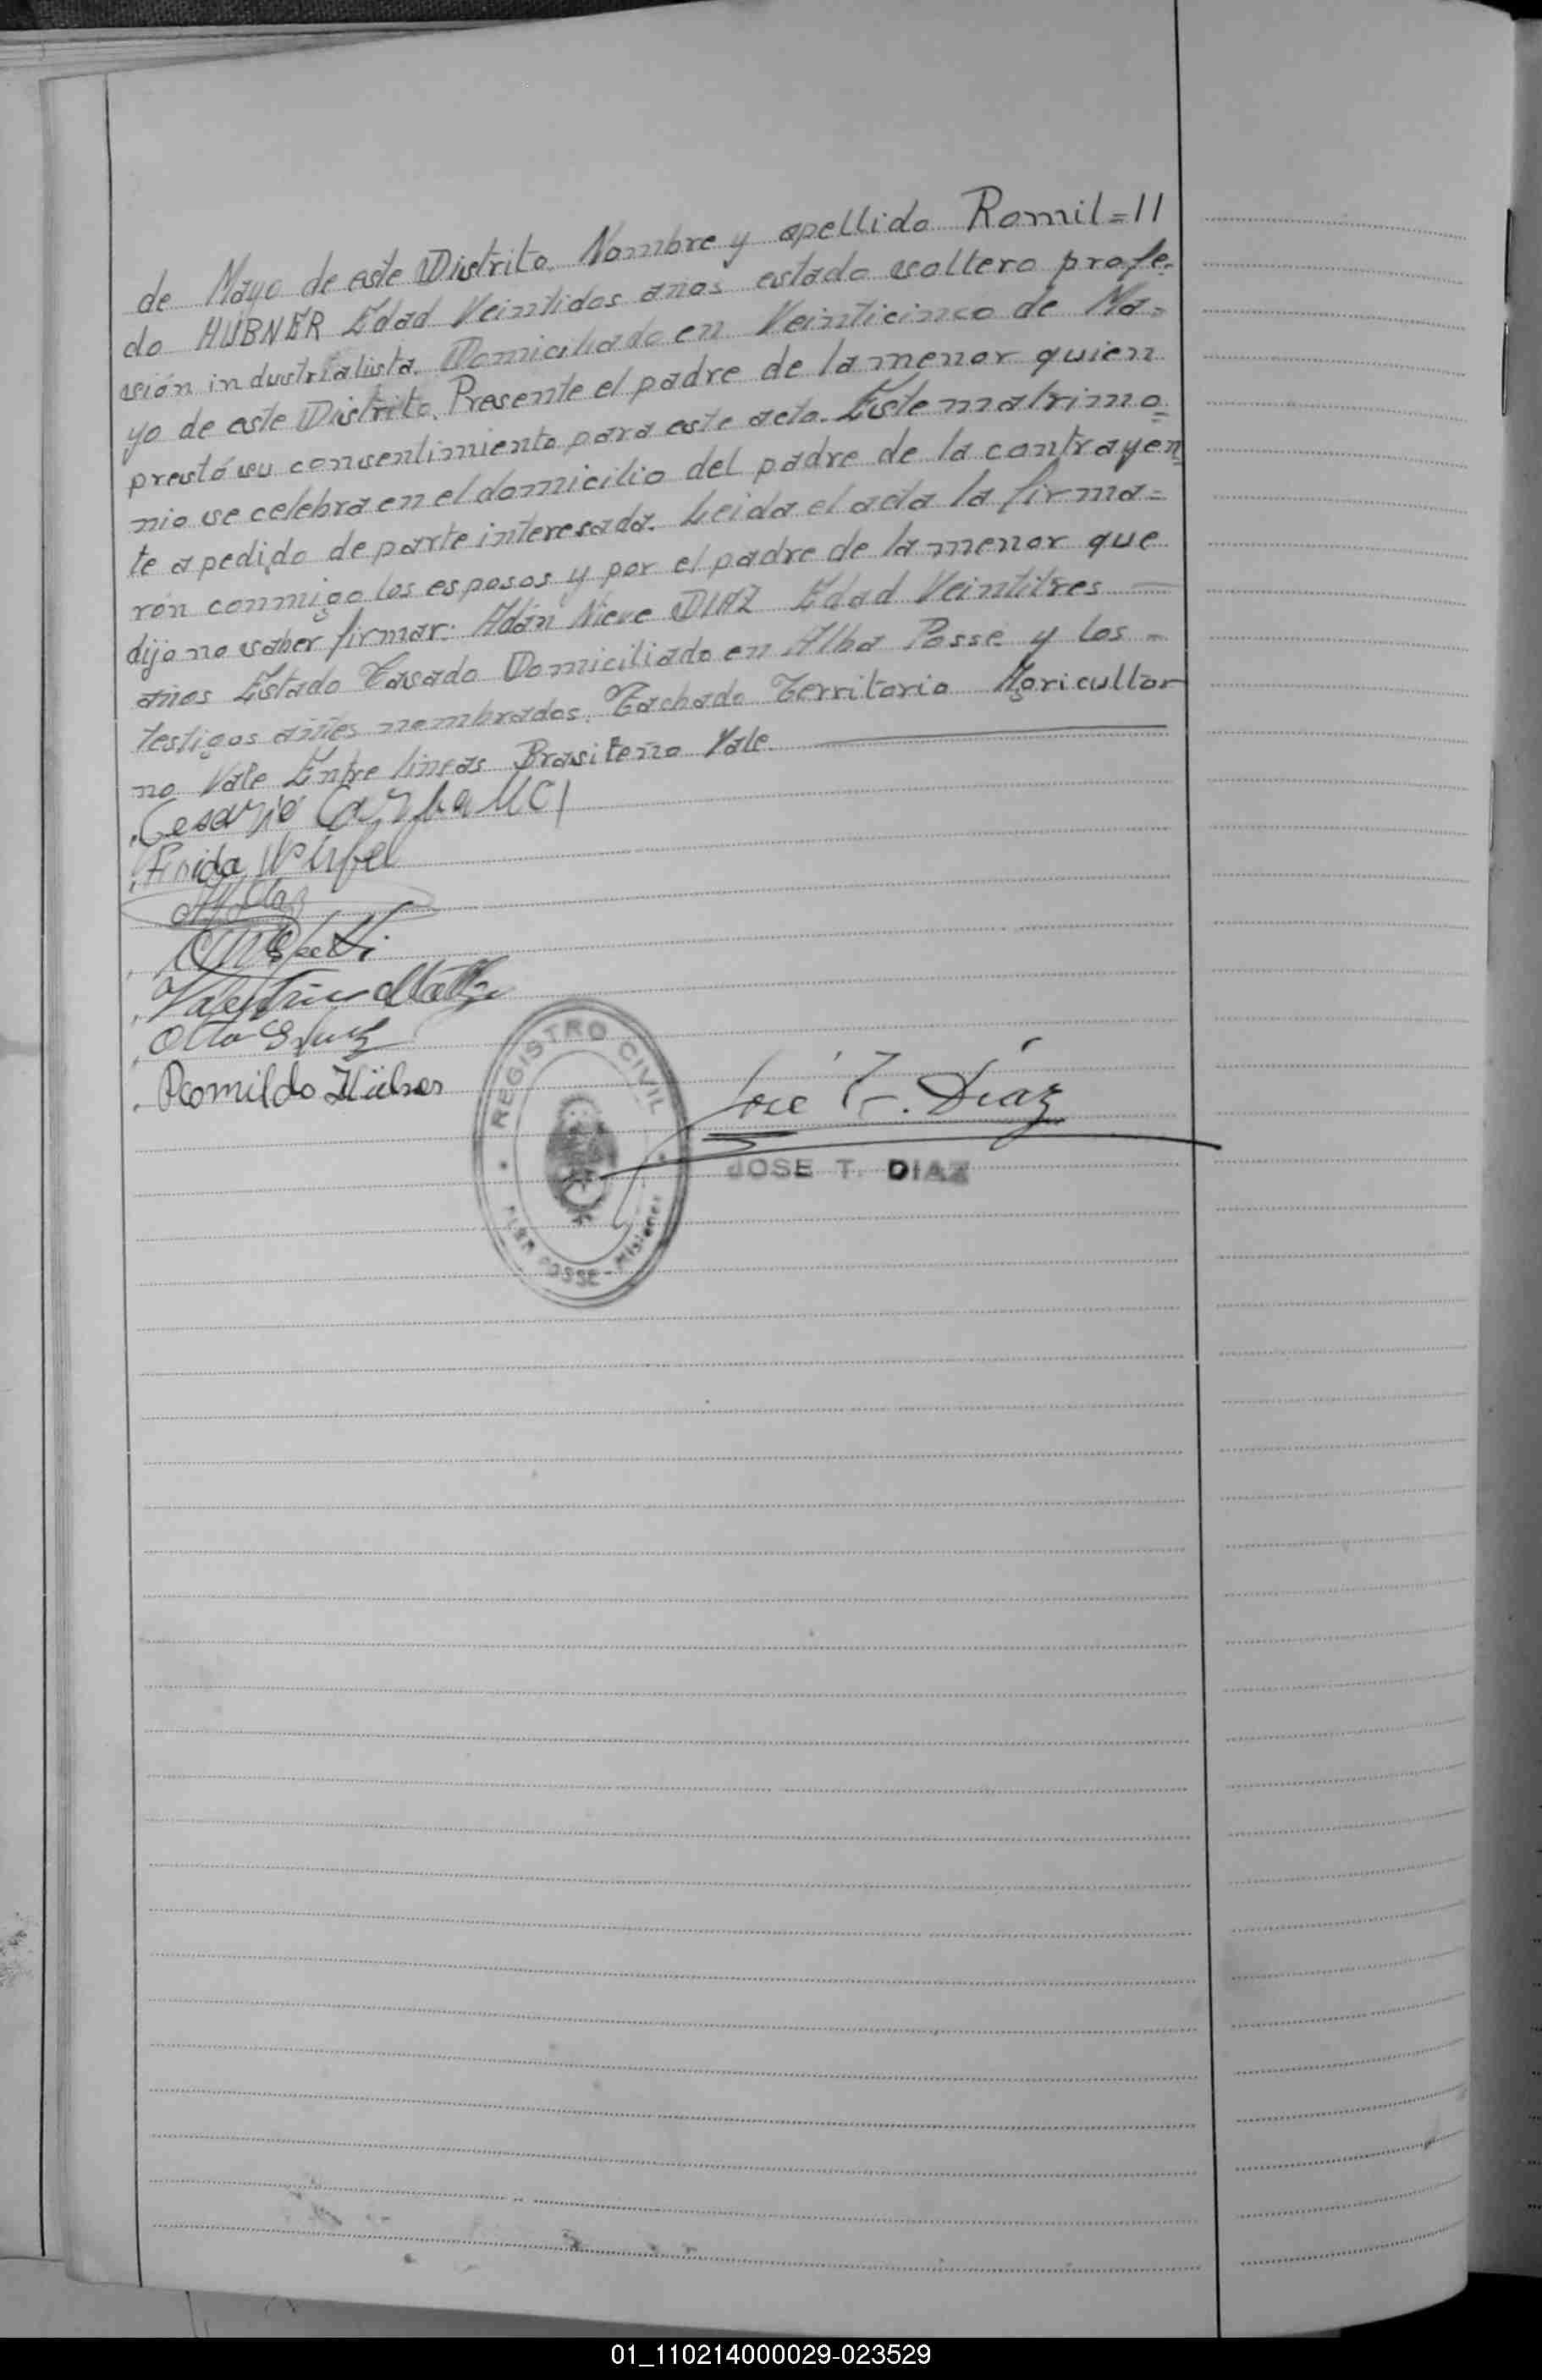 de Mayo de este Distrito. Nombre y apellido Romil=11
do HUBNER Edad Veintidos años estado soltero profe-
sión industrialista. Domiciliado en Veinticinco de Ma=
yo de este Distrito. Presente el padre de la menor quien
prestó su consentimiento para este acto. Este matrimo=
nio se celebra en el domicilio del padre de la contrayen
te a pedido de parte interesada. Leida el acta la firma=
rón conmigo los esposos y por el padre de la menor que
dijo no saber firmar: Adán Nieve DIAZ Edad Veintitres
años Estado Casado Domiciliado en Alba Posse y los =
testigos antes nombrados. Tachado Territorio Agricultor
no Vale Entre lineas Brasileño Vale.
Cesario
Frida
Valentin
Otto
Romildo Hübner
REGISTRO CIVIL
ALBA POSSE - Misiones
Jose T. Diaz
JOSE T. DIAZ
01_110214000029-023529